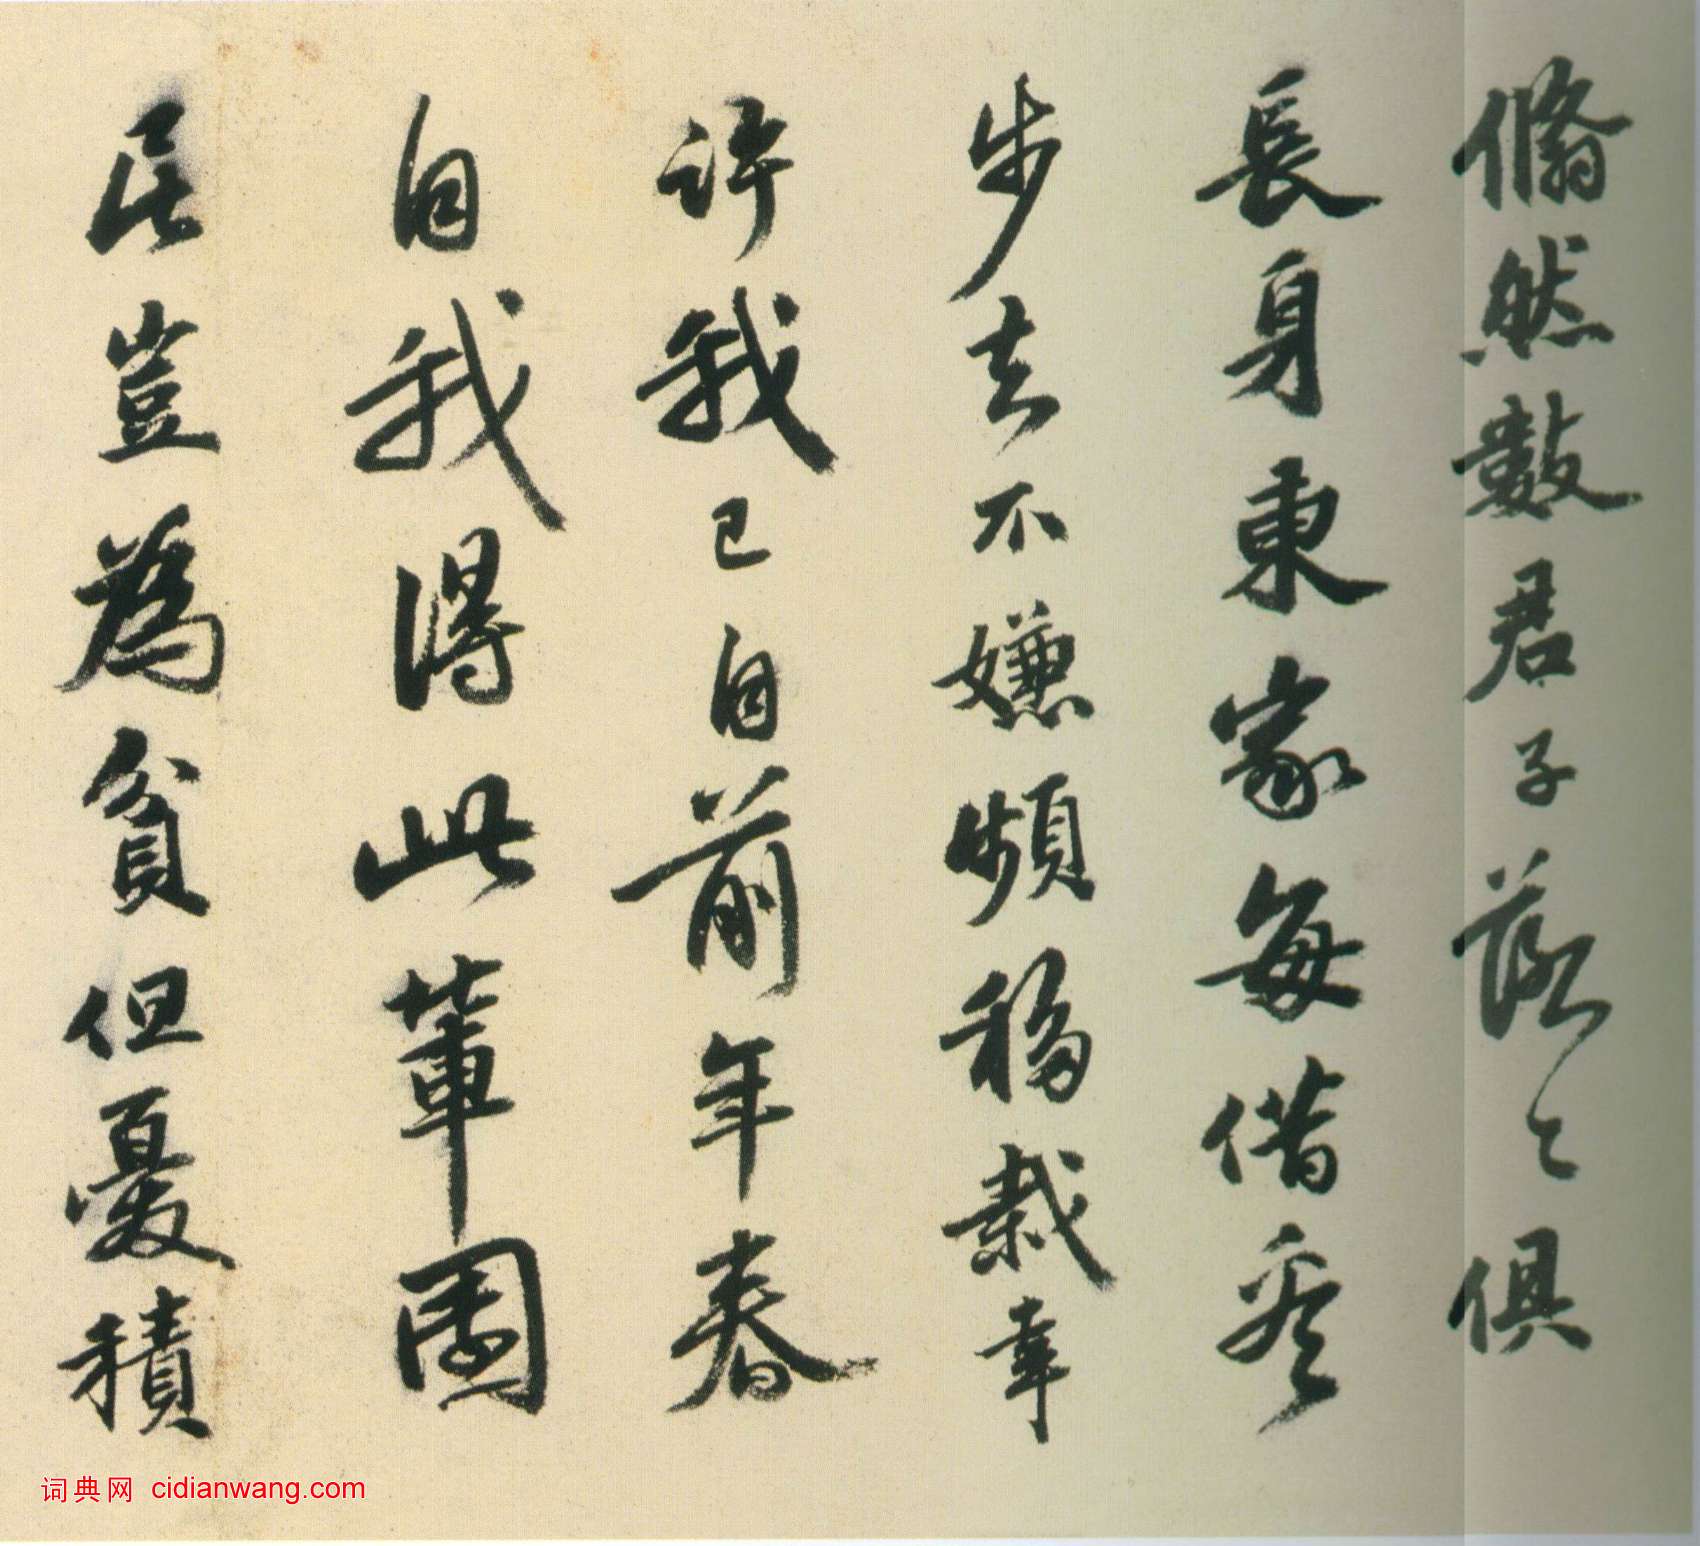 翛然數君子落〻俱
長身東家每借看
步去不嫌頻移栽幸
許我已自前年春
自我得此軍園
居豈為貧但憂積
词典网 cidianwang.com